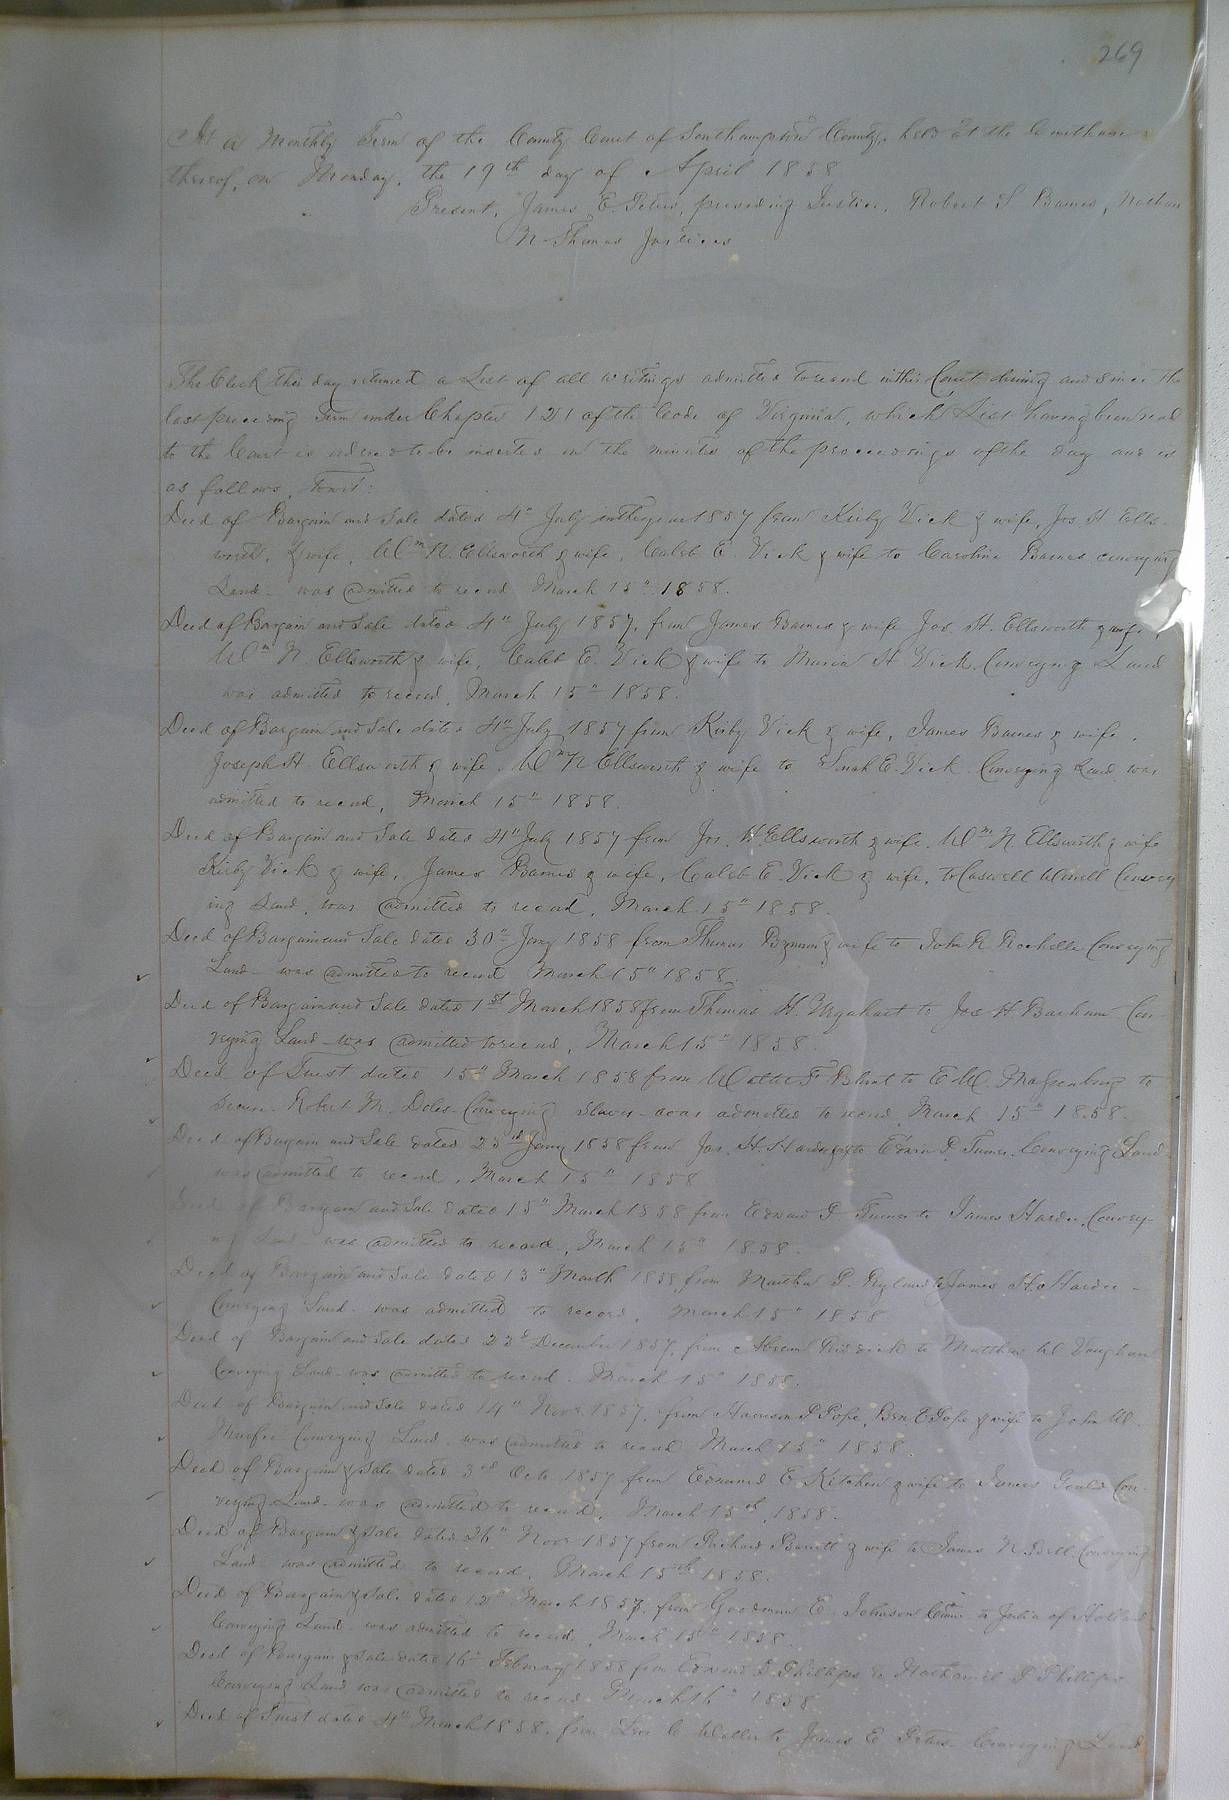 269
At a Monthly Term of the County Court of Southampton County, held at the Courthouse
thereof, on Monday, the 19th day of April 1858
Present, James E. Peters, presiding Justice, Robert S Barnes, Nathan
N Thomas Justices
The Clerk this day returned a List of all writings admitted to record in this Court during and since the
last preceeding Term under Chapter 121 of the Code of Virginia, which List having been read
to the Court is ordered to be inserted in the minutes of the proceedings of the day and is
as follows, Towit:
Deed of Bargain and Sale dated 4" July in the year 1857 from Kirby Vick & wife, Jos. H. Ells-
worth, & wife, Wm N. Ellsworth & wife, Caleb E. Vick & wife to Caroline Barnes conveying
Land - was admitted to record March 15" 1858.
Deed of Bargain and Sale dated 4" July 1857, from James Barnes & wife Jos. H. Ellsworth & wife,
Wm N. Ellsworth & wife, Caleb E. Vick & wife to Maria H Vick, Conveying Land
was admitted to record, March 15" 1858.
Deed of Bargain and Sale dated 4" July 1857 from Kirby Vick & wife, James Barnes & wife,
Joseph H. Ellsworth & wife, Wm N Ellsworth & wife to Sarah E. Vick Conveying Land was
admitted to record, March 15" 1858.
Deed of Bargain and Sale dated 4" July 1857 from Jos. H. Ellsworth & wife, Wm N Ellsworth & wife
Kirby Vick & wife, James Barnes & wife, Caleb E. Vick & wife, to Caswell Worrell Convey
ing Land, was admitted to record, March 15" 1858.
Deed of Bargain and Sale dated 30" Jany 1858 from Thomas & wife to John R Rochelle Conveying
Land - was admitted to record March 15" 1858.
Deed of Bargain and Sale dated 1st March 1858 from Thomas H. Urquhart to Jos H Barham Con-
veying Land - was admitted to record, March 15" 1858.
Deed of Trust dated 15" March 1858 from F Blunt to E W. Massenburg to
secure Robert M. Doles - Conveying Slaves - was admitted to record March 15" 1858.
Deed of Bargain and Sale dated 23rd Jany 1858 from Jas. H. to Edwin P. Turner, Conveying Land
was admitted to record, March 15" 1858
Deed of Bargain and Sale dated 15" March 1858 from Edwin P Turner to James Hardee, Convey-
ing Land was admitted to record, March 15" 1858.
Deed of Bargain and Sale dated 13" March 1858, from Martha P. Ryland to James H. Hardee -
Conveying Land - was admitted to record, March 15" 1858
Deed of Bargain and Sale dated 23d December 1857, from Abram Riddick to Matthew W Vaughan
Conveying Land - was admitted to record. March 15" 1858.
Deed of Bargain and Sale dated 14" Novr 1857, from Harrison P Pope, Ben E Pope & wife to John W.
Murfee Conveying Land - was admitted to record March 15" 1858.
Deed of Bargain & Sale dated 3rd Octo 1857 from Edmund E Kitchen & wife to James Gould Con-
veying Land - was admitted to record, March 15th, 1858.
Deed of Bargain & Sale dated 26" Novr 1857 from Richard Barrett & wife to James N. Bell. Conveying
Land - was admitted to record, March 15th 1858.
Deed of Bargain & Sale dated March 1857. from Goodman E. Johnson to Julia of Holland
Conveying Land - was admitted to record, March 15" 1858.
Deed of Bargain & Sale dated 16" February 1858 from Edwin D Phillips to Nathaniel P Phillips
Conveying Land was admitted to record March 16" 1858
Deed of Trust dated 4" March 1858, from Levi C Weller to James E Peters - Conveying Land